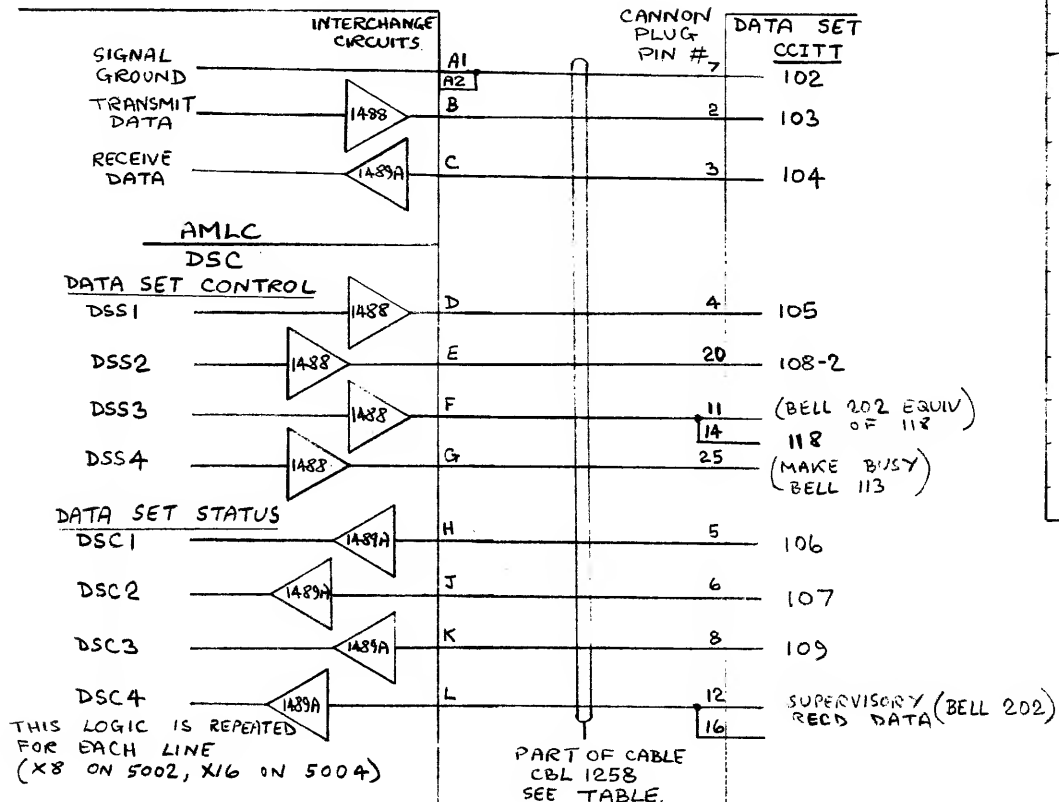 INTERCHANGE
CIRCUITS
CANNON
PLUG
PIN #
DATA SET
CCITT
SIGNAL
GROUND
A1
A2
7
102
TRANSMIT
DATA
1488
B
2
103
RECEIVE
DATA
1489A
C
3
104
AMLC
DSC
DATA SET CONTROL
DSS1
1488
D
4
105
DSS2
1488
E
20
108-2
DSS3
1488
F
11
(BELL 202 EQUIV
OF 118)
14
118
DSS4
1488
G
25
(MAKE BUSY
BELL 113)
DATA SET STATUS
DSC1
1489A
H
5
106
DSC2
1489A
J
6
107
DSC3
1489A
K
8
109
DSC4
1489A
L
12
16
SUPERVISORY (BELL 202)
RECD DATA
THIS LOGIC IS REPEATED
FOR EACH LINE
(X8 ON 5002, X16 ON 5004)
PART OF CABLE
CBL 1258
SEE TABLE.